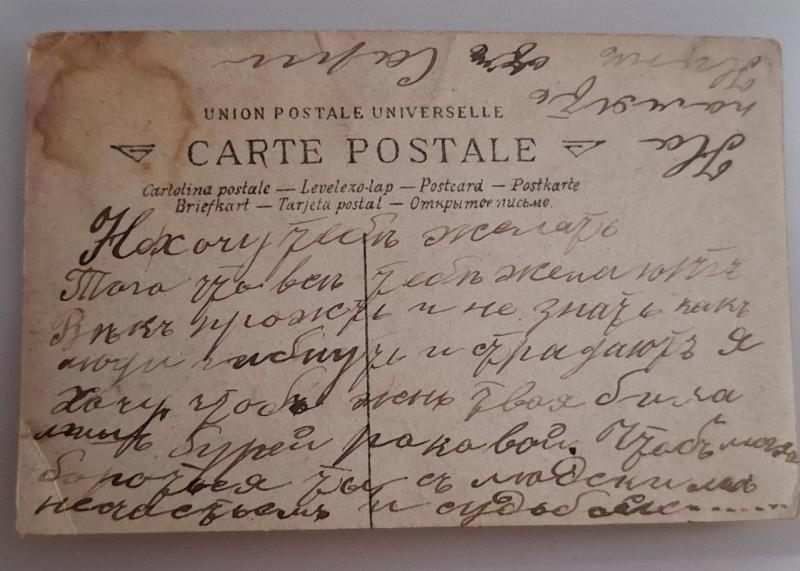 На
память
отъ Сары
UNION POSTALE UNIVERSELLE
CARTE POSTALE
Cartolina postale — Levelezo-lap — Postcard — Postkarte
Briefkart — Tarjeta postal — Открытое письмо.
Не хочу тебѣ желать
Того что всѣ тебѣ желаютъ
Вѣкъ прожть и не знать какъ
люди гибнуть и страдаютъ Я
Хочу чтобъ жизнь твоя была
бурей роковой. Чтобъ
бороться ты съ людскимъ
несчастьемъ и судьбой